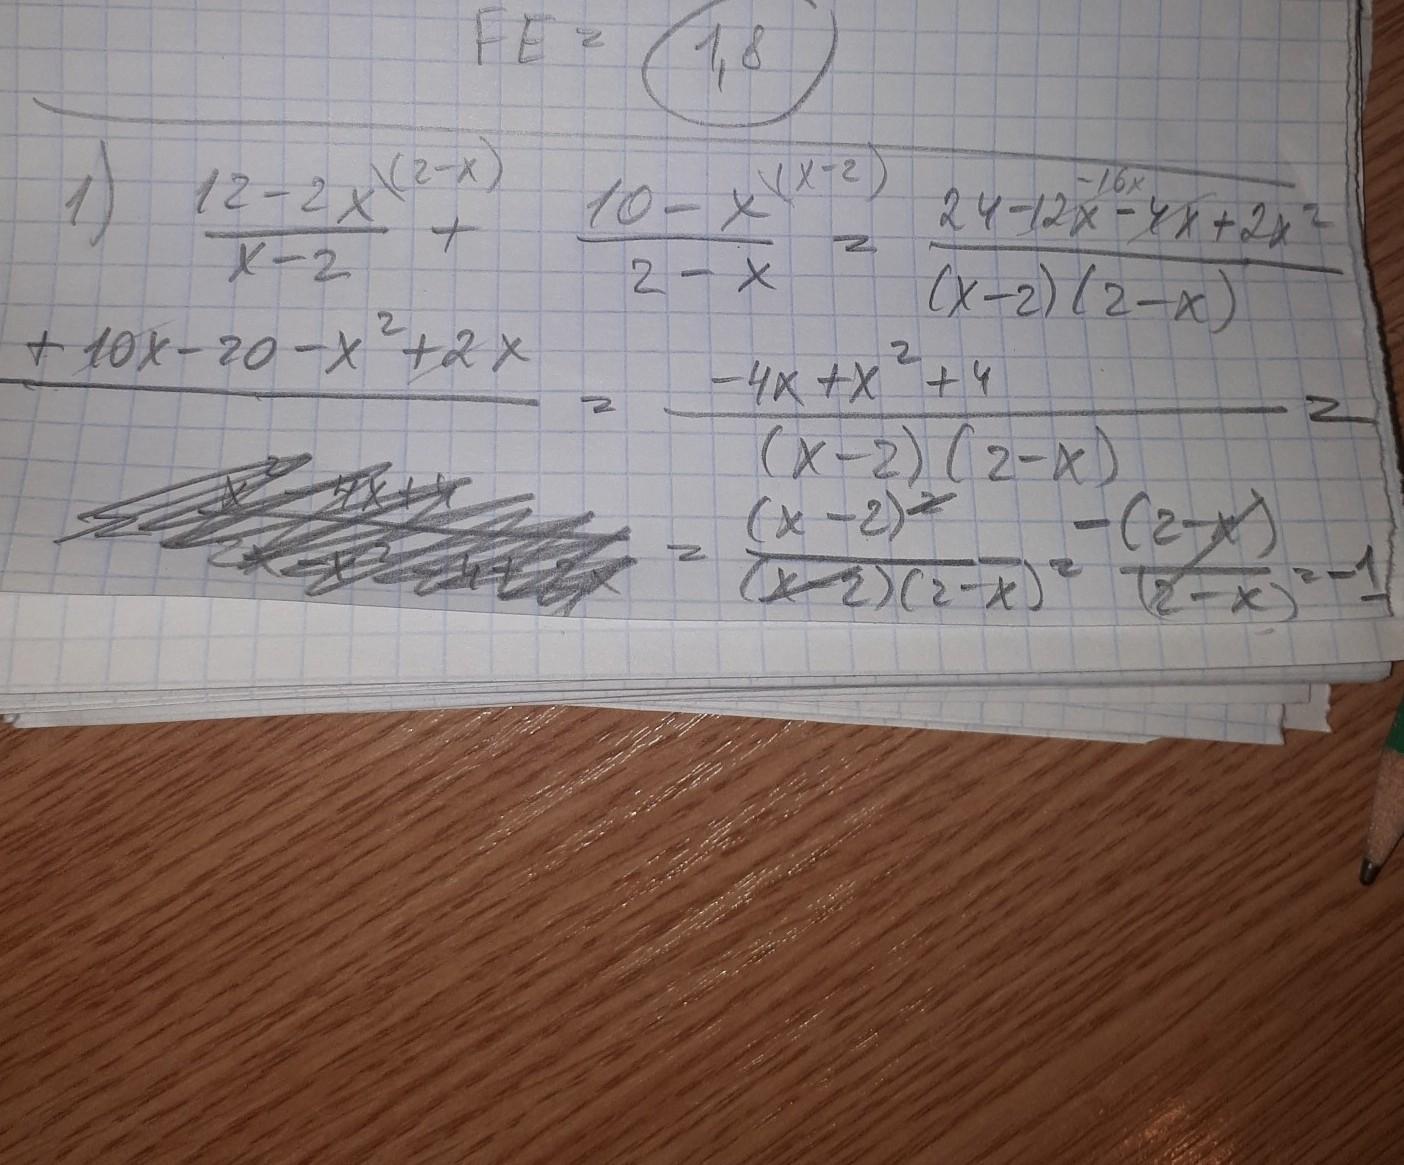 FE = 1,8
1) (12-2x)/(x-2) ^(2-x) + (10-x)/(2-x) ^(x-2) = (24-12x-4x+2x²)/((x-2)(2-x)) -16x
+10x-20-x²+2x = (-4x+x²+4)/((x-2)(2-x)) =
= (x-2)²/((x-2)(2-x)) = -(2-x)/(2-x) = -1